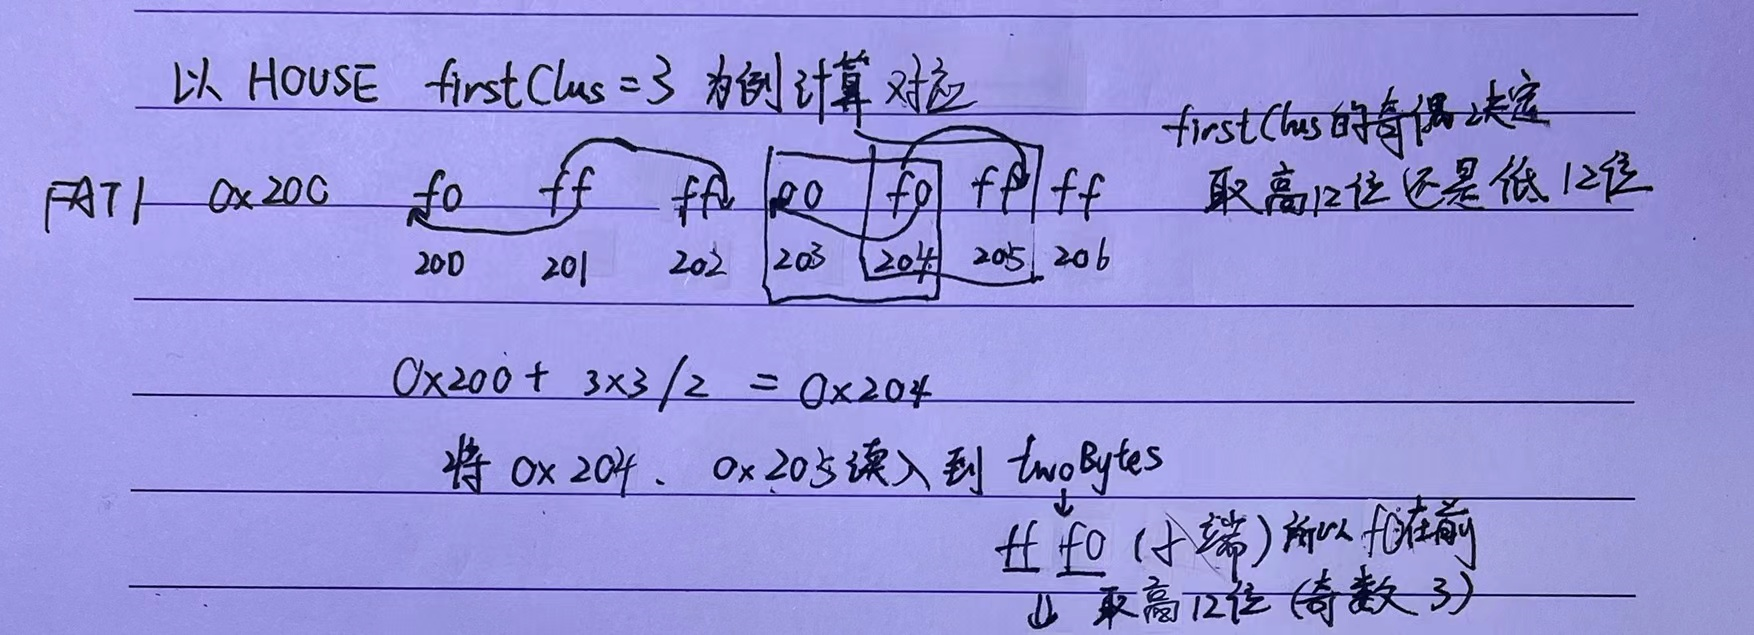 以 HOUSE firstClus = 3 为例计算对应
firstClus的奇偶决定
取高12位还是低12位
FAT1 0x200 f0 ff ff 00 f0 ff ff
200 201 202 203 204 205 206
0x200 + 3x3/2 = 0x204
将 0x204、0x205读入到 twoBytes
↓
ff f0 (小端) 所以 f0在前
↓ 取高12位 (奇数 3)